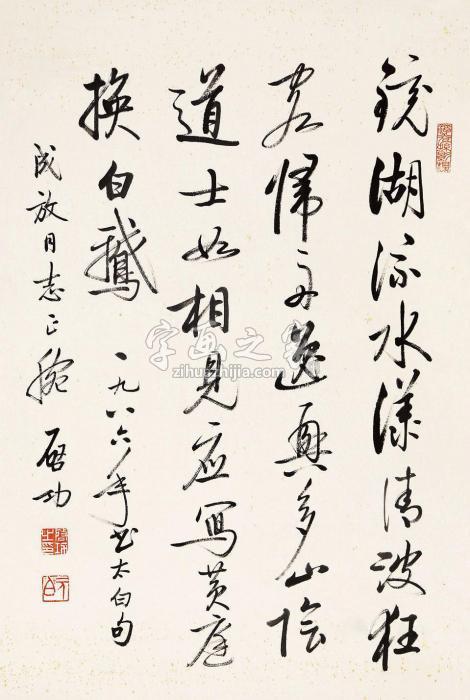 鏡湖流水漾清波狂
客帰舟逸興多山陰
道士如相見应寫黄庭
換白鵝 一九八六年书太白句
成放同志正腕 啟功
字画之家
zihuazhijia.com
啟功之印
元白